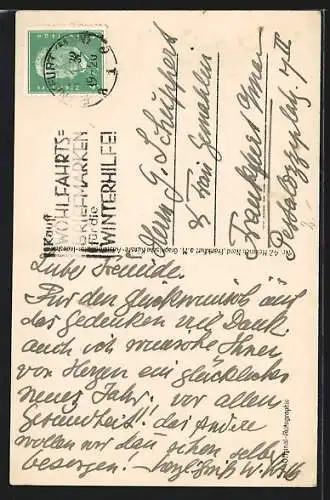 Kauft
WOHLFAHRTS=
BRIEFMARKEN
für die
WINTERHILFE!
Herrn G. Schuppert
& Frau Gemahlin
Frankfurt
Pestalozzyplatz 7/II
Liebe Freunde.
Für den Glückwunsch auf
das Gedenken viel Dank
auch ich wünsche Ihnen
von Herzen ein glückliches
neues Jahr! vor allem
Gesundheit! das Andere
wollen wir dann schon selber
besorgen! Herzl. Gruß
Original-Photographie